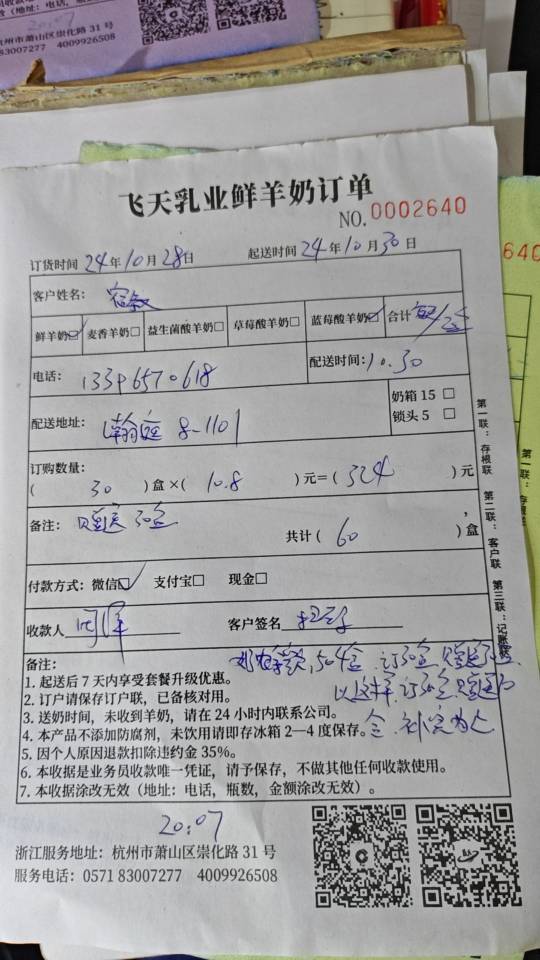 杭州市萧山区崇化路 31 号
83007277 4009926508
飞天乳业鲜羊奶订单
NO.0002640
订货时间 24年10月28日 起送时间 24年10月30日
客户姓名：
鲜羊奶☑ 麦香羊奶□ 益生菌酸羊奶□ 草莓酸羊奶□ 蓝莓酸羊奶☑ 合计
电话： 13396570618 配送时间：10.30
配送地址： 瀚庭 8-1101 奶箱 15 □
锁头 5 □
订购数量：
( 30 )盒×( 10.8 )元=( 324 )元
备注： 赠送30盒 共计( 60 )盒
付款方式：微信☑ 支付宝□ 现金□
收款人 客户签名
第一联：存根联 第二联：客户联 第三联：记账联
备注： 504盒 订30盒 赠送
1. 起送后 7 天内享受套餐升级优惠。
2. 订户请保存订户联，已备核对用。 订30盒 赠送
3. 送奶时间，未收到羊奶，请在 24 小时内联系公司。
4. 本产品不添加防腐剂，未饮用请即存冰箱 2—4 度保存。
5. 因个人原因退款扣除违约金 35%。
6. 本收据是业务员收款唯一凭证，请予保存，不做其他任何收款使用。
7. 本收据涂改无效（地址：电话，瓶数，金额涂改无效）。
20:07
浙江服务地址：杭州市萧山区崇化路 31 号
服务电话：0571 83007277 4009926508
640